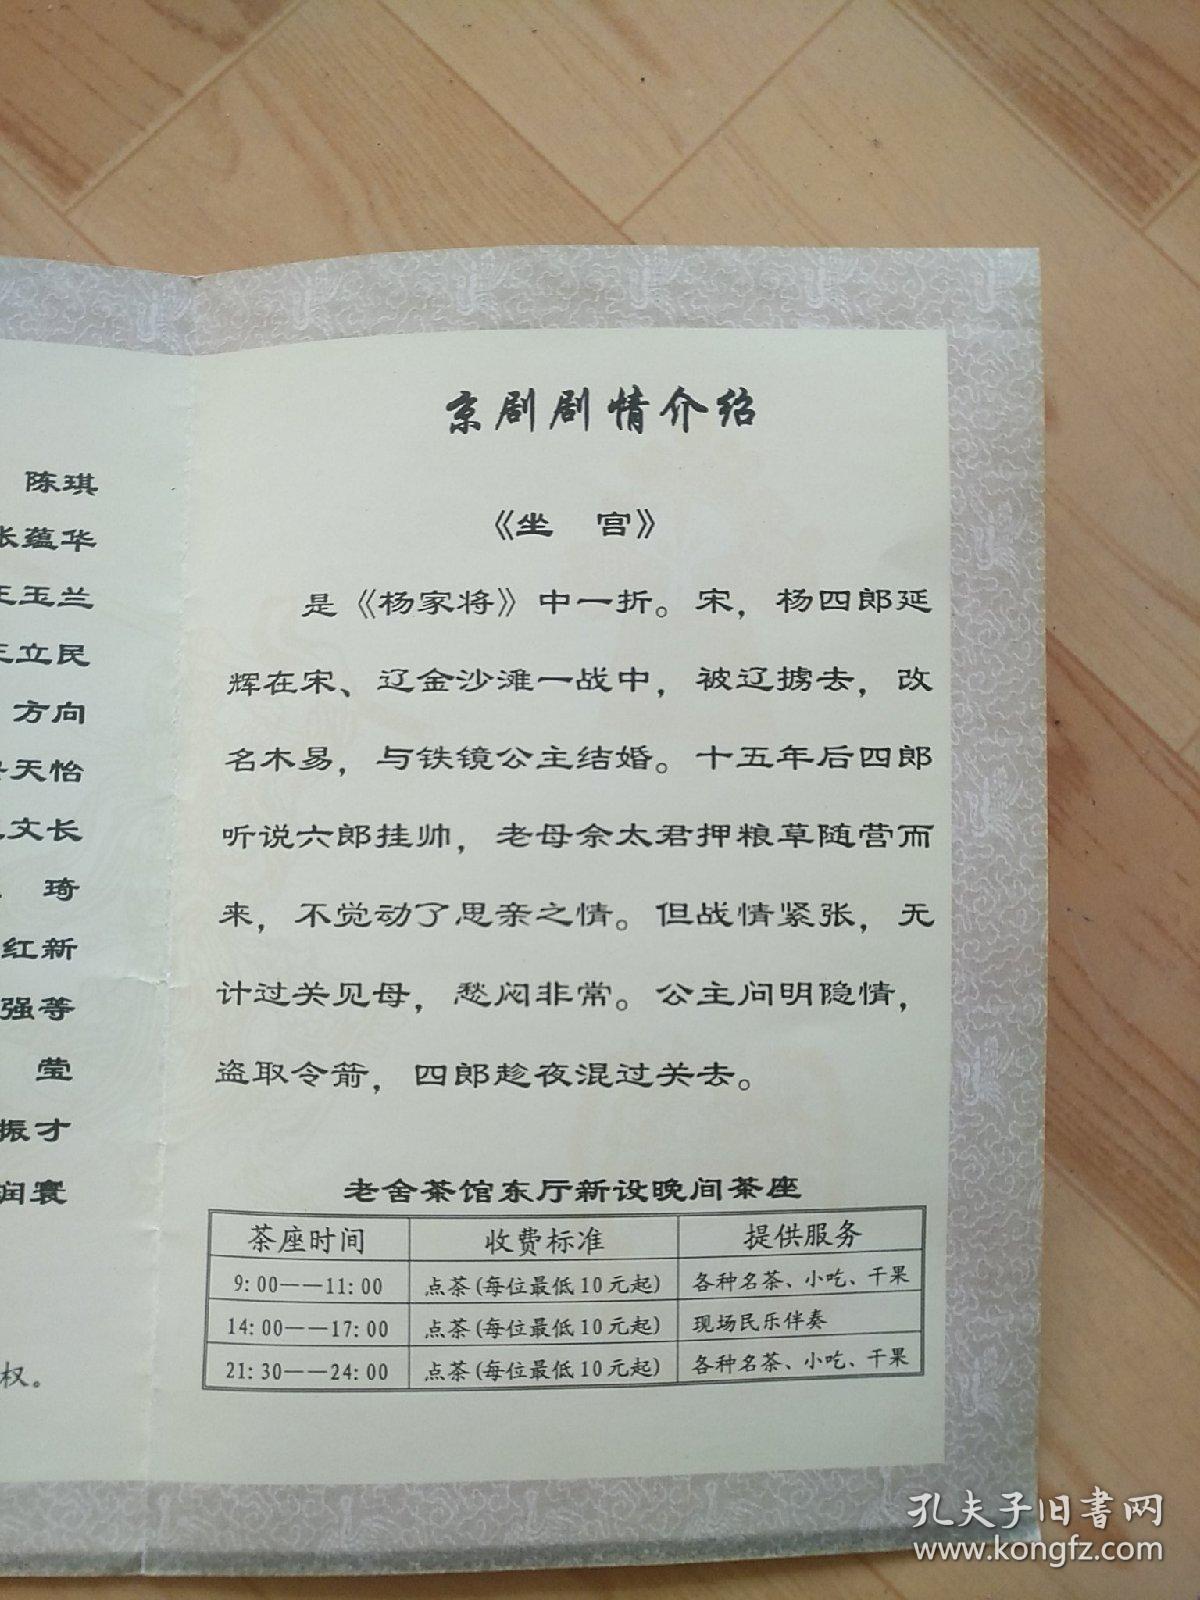 陈琪
张蕴华
王玉兰
王立民
方向
天怡
文长
琦
红新
强等
莹
振才
润寰
权。
京剧剧情介绍
《坐 宫》
是《杨家将》中一折。宋，杨四郎延
辉在宋、辽金沙滩一战中，被辽掳去，改
名木易，与铁镜公主结婚。十五年后四郎
听说六郎挂帅，老母佘太君押粮草随营而
来，不觉动了思亲之情。但战情紧张，无
计过关见母，愁闷非常。公主问明隐情，
盗取令箭，四郎趁夜混过关去。
老舍茶馆东厅新设晚间茶座
茶座时间 收费标准 提供服务
9:00——11:00 点茶(每位最低10元起) 各种名茶、小吃、干果
14:00——17:00 点茶(每位最低10元起) 现场民乐伴奏
21:30——24:00 点茶(每位最低10元起) 各种名茶、小吃、干果
孔夫子旧书网
www.kongfz.com